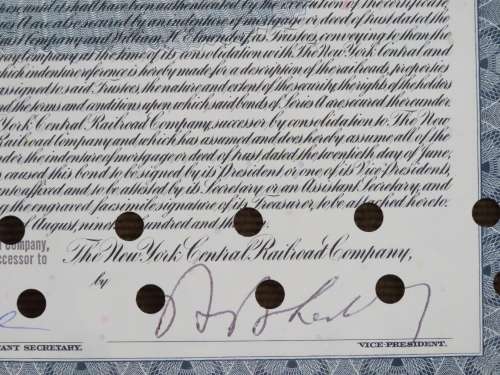 shall not become obligatory until it shall have been authenticated by the execution of the certificate,
also secured by an indenture of mortgage or deed of trust dated the
Company and William H. Elmendorf, as Trustees, conveying to them the
Company at the time of its consolidation with The New York Central and
which indenture reference is hereby made for a description of the railroads, properties
assigned to said Trustees, the nature and extent of the security, the rights of the holders
and the terms and conditions upon which said bonds of Series A are secured thereunder.
York Central Railroad Company, successor by consolidation to The New
Railroad Company and which has assumed and does hereby assume all of the
under the indenture of mortgage or deed of trust dated the twentieth day of June,
caused this bond to be signed by its President or one of its Vice Presidents,
affixed and to be attested by its Secretary or an Assistant Secretary, and
the engraved facsimile signature of its Treasurer, to be attached hereto.
of August, nineteen hundred and thirteen.
Company,
successor to
The New York Central Railroad Company,
by
ANT SECRETARY.
VICE-PRESIDENT.